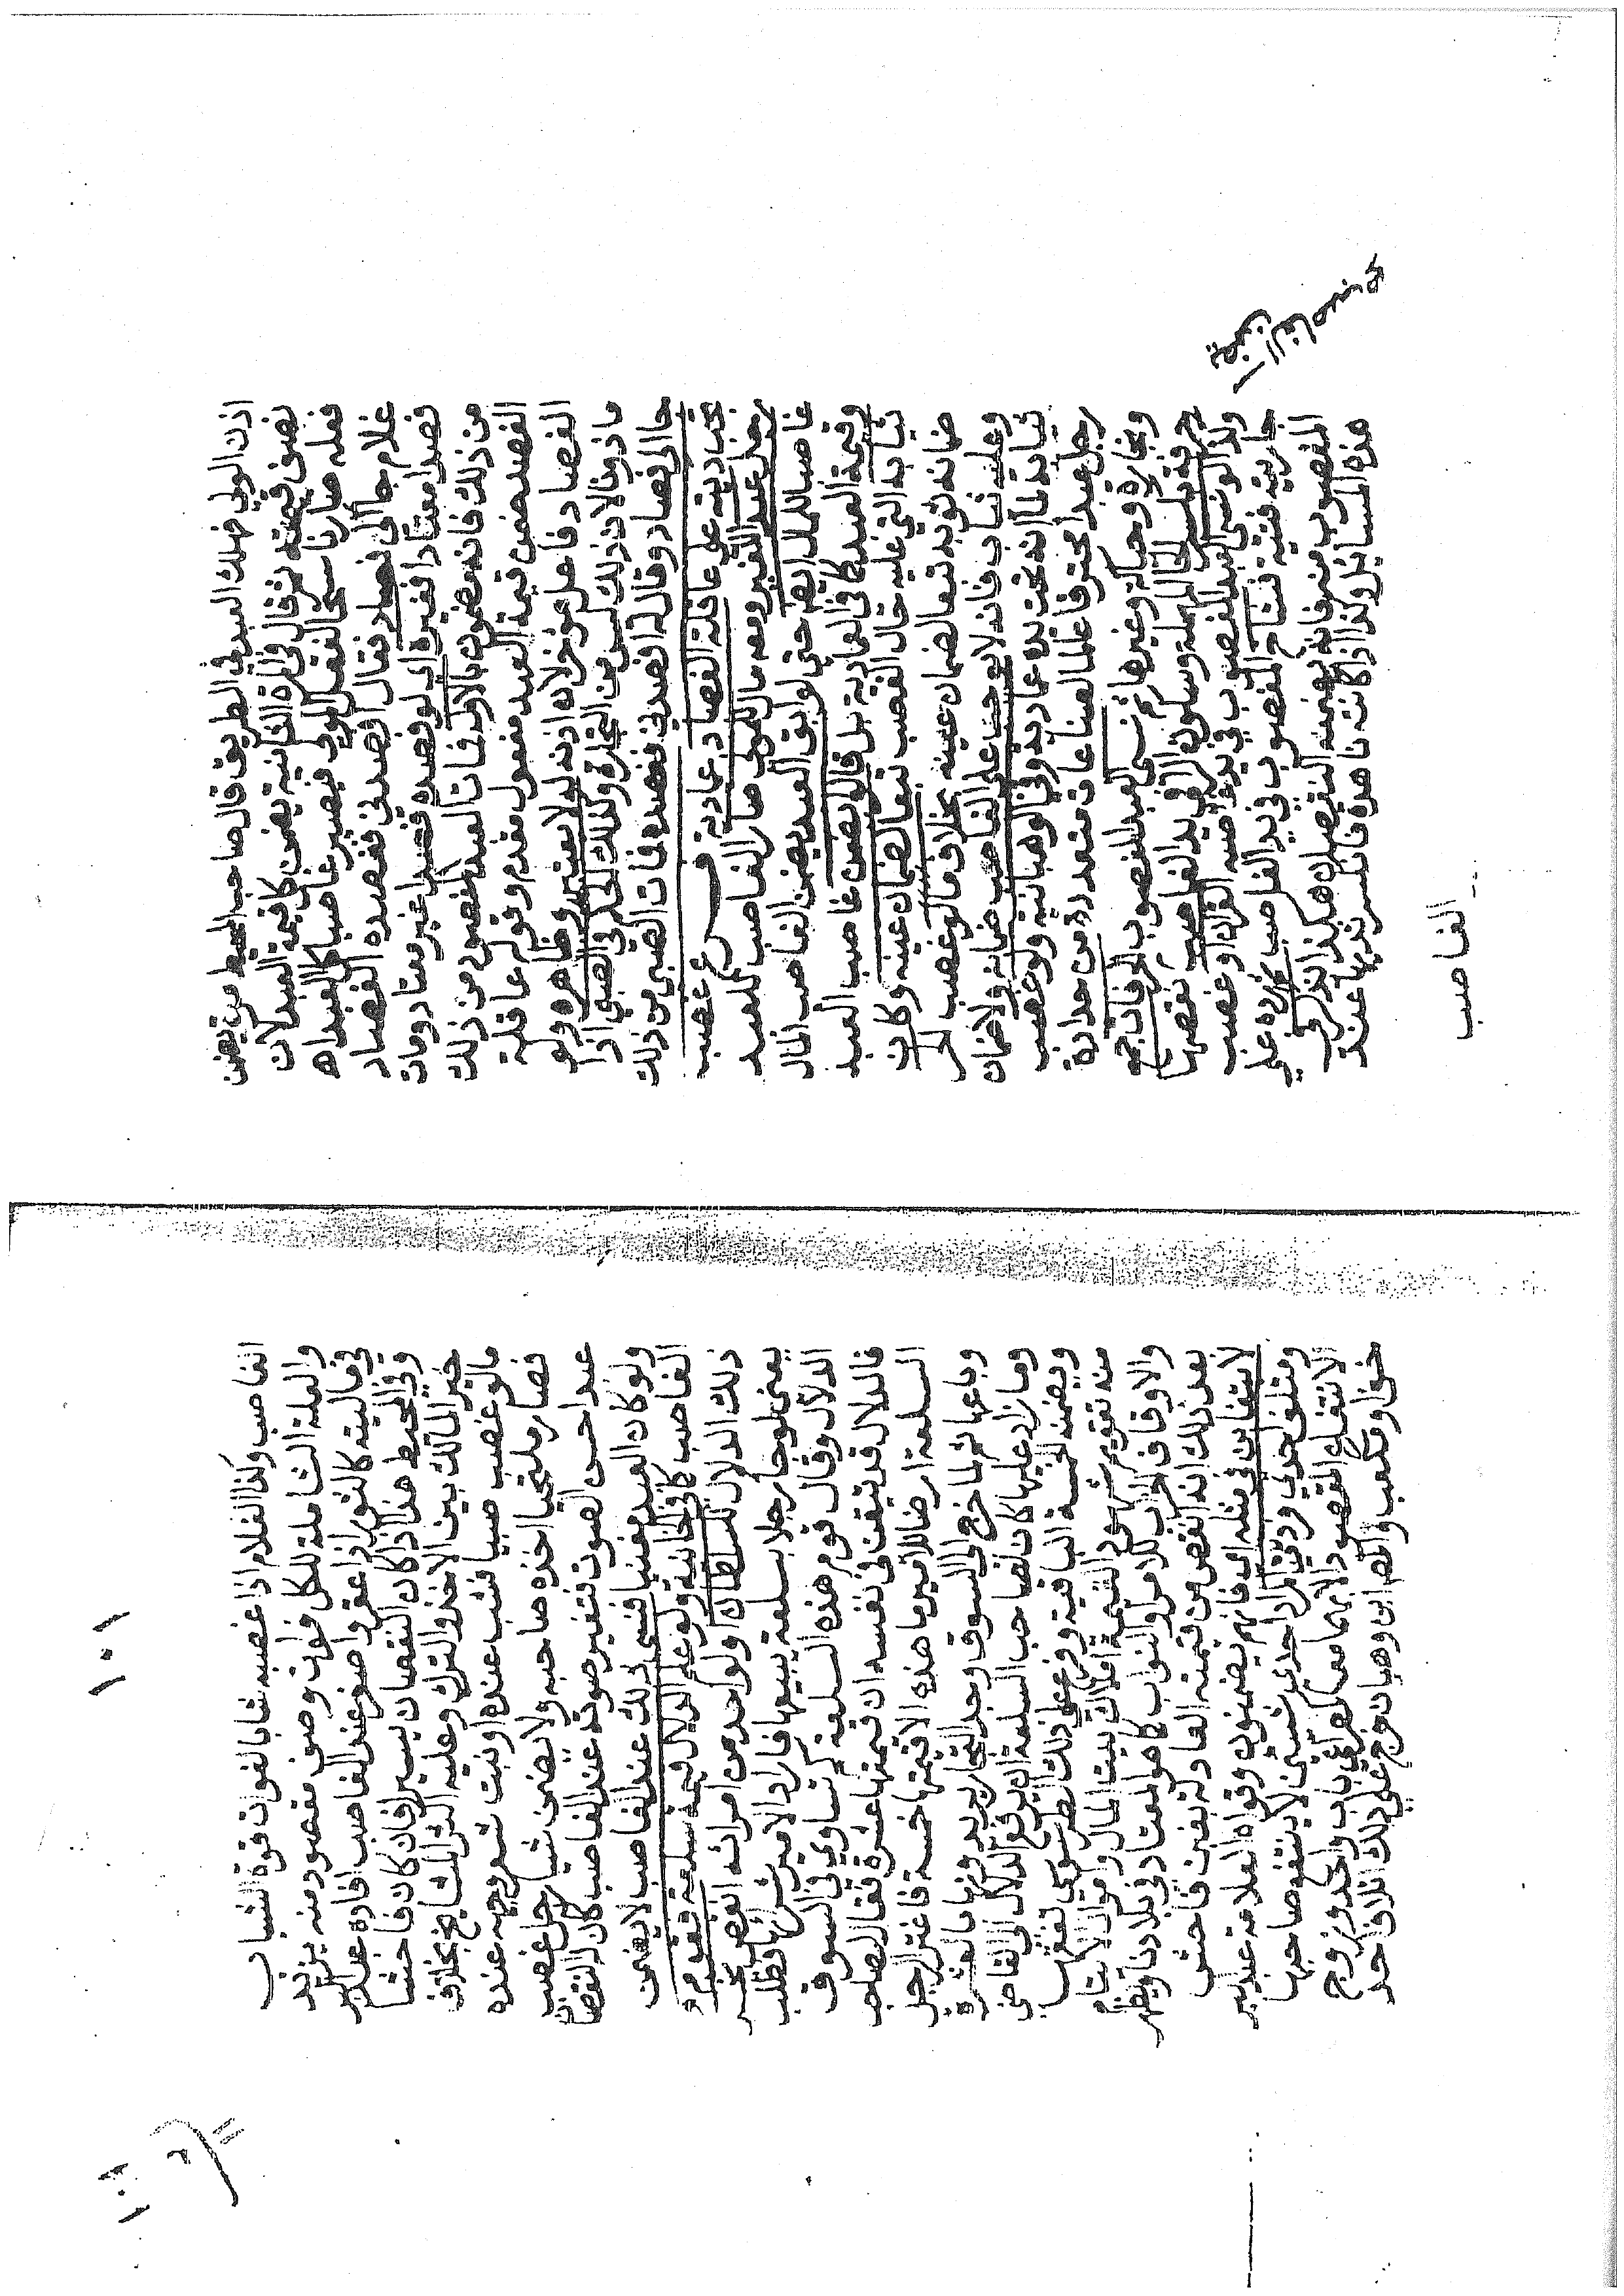 اذن الولي فهلك العبد في الطريق قال صاحب المحيط مرة يضمن
نصف قيمته ثم قال في المرة الثانية يضمن كل قيمة العبد لان
فعله صار ناسخا لفعل المولى فيصير غاصبا كل العبد اه
غلام جا الى فصاد فقال افصدني ففصده الفصاد
فصدا معتادا فغيره اي لو فصده فصدا غير معتاد ومات
من ذلك فانه مضمون بالاولى فمات العبد المفصود من ذلك
الفصد ضمن قيمة العبد مفعول مقدم وقوله عاقلة
الفصاد فاعل مؤخر لانه اذنه لا يعتبر وظاهره ولو
ماذونا لان ذلك ليس من التجارة وكذلك الحكم في الصبي اذا
جا الى فصاد وقال له افصدني ففصده فمات الصبي من ذلك
تجب ديته على عاقلة الفصاد عمادية فرع غصب
رجل عبد الغير ومعه مال المولى صار الغاصب للعبد
غاصبا للمال ايضا حتى لو ابق العبد يضمن الغاصب المال
وقيمة العبد كما في العمادية بل قالوا يضمن غاصب العبد
ثيابه التي عليه حال الغصب تبعا لضمان عينه وكان
ضمانه ثوبه تبعا لضمان عينه بخلاف ما لو غصب الحر
وعليه ثياب فانه لا يوجب على الغاصب ضمانه ولا ضمان
ثيابه لما انه تحت يده عمادية وفي الوهبانية ولو غصب
رجل عبدا محترفا عالما لصناعات متعددة من حدادة
ونجارة وحياكة وغيرها ثم نسي العبد المغصوب الحرفات جمع
حرفة بكسر الحا المهملة وسكون الرا في يد الغاصب نقصها
وكذا لو نسي العبد المغصوب في يد غاصبه القران او غصب
جارية فتية فشاخ المغصوب في يد الغاصب يرده على
المغصوب منه فانه يضمنه النقصان هكذا ذكر في
هذه المسايل وكذا اذا كانت ناهدة فانكسر ثديها عند
الغاصب
١٠١
الغاصب وكذا الغلام اذا غصبه شابا لفوات قوة الشباب
والعلة الشاملة للكل فوات وصف مقصود منه يزيد
في ماليته كالثور اذا عقر واصفر عند الغاصب افاده عبد البر
وفي المحيط هذا اذا كان النقصان يسيرا فان كان فاحشا
خير المالك بين الاخذ والترك وعليه اكثر المشايخ بخلاف
ما لو غصب صبيا فشب عنده او نبت شعر وجهه عنده
فصار ملتحيا اخذه صاحبه ولا يضمن شيا رجل غصب
عبدا حسن الصوت فتغير صوته عند الغاصب كان له النقصان
ولو كان العبد مغنيا فنسي ذلك عند الغاصب لا يضمن
الغاصب كما في الخانية ولو علم الدلال قيمة سلعة فقوم
ذلك الدلال للسلطان او لواحد من امرائه انقص بخسر
يعني لو جا رجلا بسلعة يبيعها فاراد الامير شراها فطلب
الدلال وقال قوم هذه السلعة كم تساوي في السوق
فالدلال قد تيقن في نفسه ان قيمتها عشرة فقال لصاحب
السلعة ارضا للامير ما هذه الا قيمتها خمسة فاغتر الرجل
وباعها ثم لما خرج الى السوق وجد التجار يريدونها بالعشرة
وما زاد عليها كان لصاحب السلعة ان يرفع الدلال الى القاضي
ويضمنه الخمسة الباقية وفرع على ذلك الطرسوسي تفقها
منه تقويم شهود القيمة املاك بيت المال واموال الايتام
والاوقاف الخراب للامرا والنواب كما هو المعتاد في بلادنا ويظهر
بعد ذلك انه انقص من قيمته العادلة بغبن فاحش
لا يتغابن في مثله اي فانهم يضمنون وقواه العلامة عبد البر
ومتلف احدى فردتين اراد احدى شيئين لا ينتفع صاحبها
الانتفاع المقصود الا بهما معا كمصراعي باب واحد وزوج
خف او مكعب والمصر ابن وهبان نوع على ذلك اتلاف احد